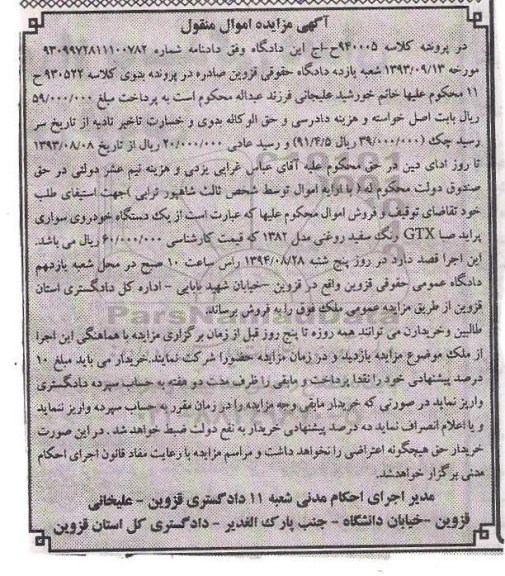 آگهی مزایده اموال منقول
در پرونده کلاسه ۹۴۰۰۰۵ح-اج این دادگاه وفق دادنامه شماره ۹۳۰۹۹۷۲۸۱۱۱۰۰۷۸۲
مورخه ۱۳۹۳/۰۹/۱۳ شعبه یازده دادگاه حقوقی قزوین صادره در پرونده بدوی کلاسه ۹۳۰۵۲۲ ح
۱۱ محکوم علیها خانم خورشید علیجانی فرزند عبداله محکوم است به پرداخت مبلغ ۵۹/۰۰۰/۰۰۰
ریال بابت اصل خواسته و هزینه دادرسی و حق الوکاله بدوی و خسارت تاخیر تادیه از تاریخ سر
رسید چک (۳۹/۰۰۰/۰۰۰ ریال ۹۱/۴/۵) و رسید عادی ۲۰/۰۰۰/۰۰۰ ریال از تاریخ ۱۳۹۳/۰۸/۰۸
تا روز ادای دین در حق محکوم علیه آقای عباس غرایی یزدی و هزینه نیم عشر دولتی در حق
صندوق دولت محکوم له ( با ارایه اموال توسط شخص ثالث شاهپور ترابی )جهت استیفای طلب
خود تقاضای توقیف و فروش اموال محکوم علیها که عبارت است از یک دستگاه خودروی سواری
پراید صبا GTX رنگ سفید روغنی مدل ۱۳۸۲ که قیمت کارشناسی ۶۰/۰۰۰/۰۰۰ ریال می باشد.
این اجرا قصد دارد در روز پنج شنبه ۱۳۹۴/۰۸/۲۸ راس ساعت ۱۰ صبح در محل شعبه یازدهم
دادگاه عمومی حقوقی قزوین واقع در قزوین –خیابان شهید بابایی - اداره کل دادگستری استان
قزوین از طریق مزایده عمومی ملک فوق را به فروش برساند
طالبین وخریداران می توانند همه روزه تا پنج روز قبل از زمان برگزاری مزایده با هماهنگی این اجرا
از ملک موضوع مزایده بازدید و در زمان مزایده حضورا شرکت نمایند.خریدار می باید مبلغ ۱۰
درصد پیشنهادی خود را نقدا پرداخت و مابقی را ظرف مدت دو هفته به حساب سپرده دادگستری
واریز نماید در صورتی که خریدار مابقی وجه مزایده را در زمان مقرر به حساب سپرده واریز ننماید
و یا اعلام انصراف نماید ده درصد پیشنهادی خریدار به نفع دولت ضبط خواهد شد . در این صورت
خریدار حق هیچگونه اعتراضی را نخواهد داشت و مراسم مزایده با رعایت مفاد قانون اجرای احکام
مدنی برگزار خواهد شد.
مدیر اجرای احکام مدنی شعبه ۱۱ دادگستری قزوین - علیخانی
قزوین –خیابان دانشگاه - جنب پارک الغدیر - دادگستری کل استان قزوین